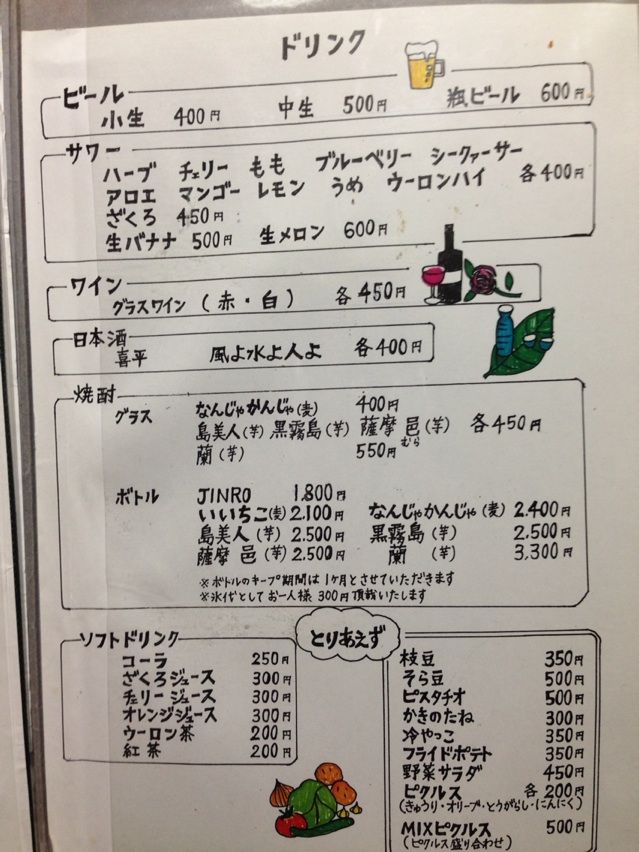 ドリンク
ビール
小生 400円 中生 500円 瓶ビール 600円
サワー
ハーブ チェリー もも ブルーベリー シークァーサー
アロエ マンゴー レモン うめ ウーロンハイ 各400円
ざくろ 450円
生バナナ 500円 生メロン 600円
ワイン
グラスワイン (赤・白) 各450円
日本酒
喜平 風よ水よ人よ 各400円
焼酎
グラス なんじゃかんじゃ(麦) 400円
島美人(芋) 黒霧島(芋) 薩摩 邑(芋) 各450円
むら
蘭(芋) 550円
ボトル JINRO 1.800円
いいちこ(麦) 2.100円 なんじゃかんじゃ(麦) 2.400円
島美人(芋) 2.500円 黒霧島(芋) 2,500円
薩摩 邑(芋) 2.500円 蘭(芋) 3,300円
※ボトルのキープ期間は1ヶ月とさせていただきます
※氷代としてお一人様 300円頂戴いたします
ソフトドリンク
コーラ 250円
ざくろジュース 300円
チェリージュース 300円
オレンジジュース 300円
ウーロン茶 200円
紅茶 200円
とりあえず
枝豆 350円
そら豆 500円
ピスタチオ 500円
かきのたね 300円
冷やっこ 350円
フライドポテト 350円
野菜サラダ 450円
ピクルス 各200円
(きゅうり・オリーブ・とうがらし・にんにく)
MIXピクルス 500円
(ピクルス盛り合わせ)